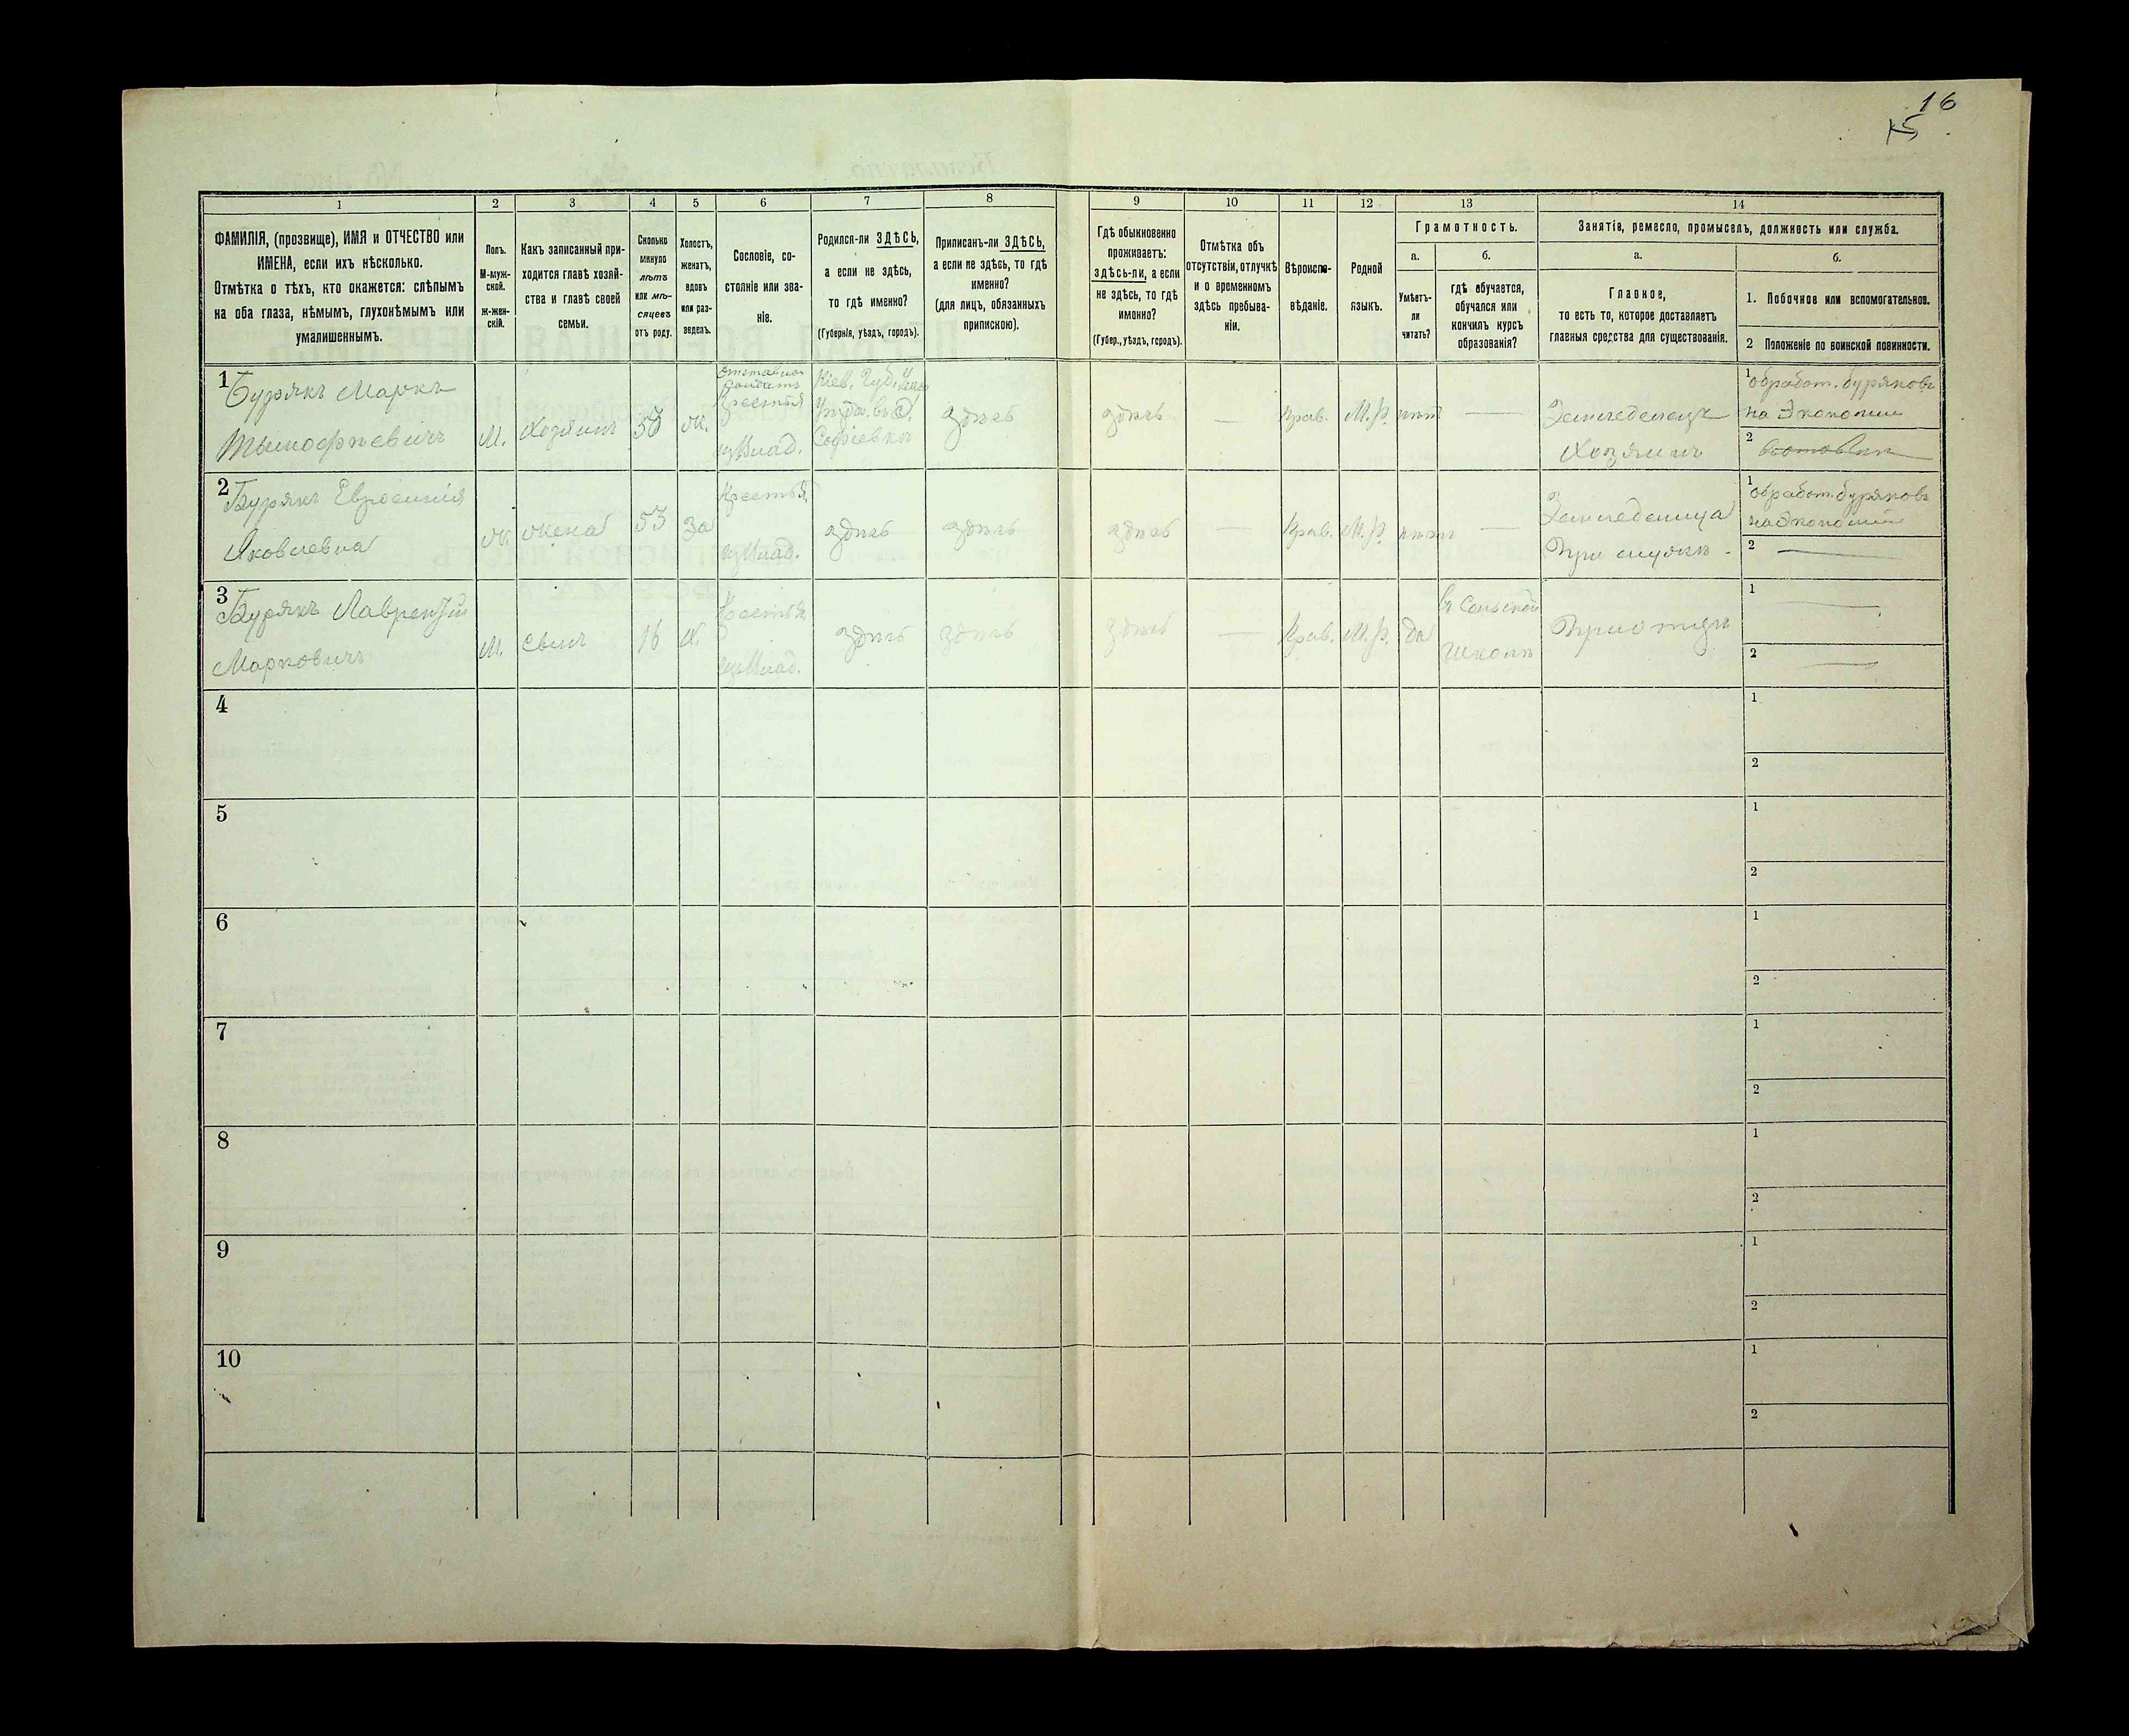 16
15
1
2
3
4
5
6
7
8
9
10
11
12
13
14
ФАМИЛІЯ, (прозвище), ИМЯ и ОТЧЕСТВО или
ИМЕНА, если ихъ нѣсколько.
Отмѣтка о тѣхъ, кто окажется: слѣпымъ
на оба глаза, нѣмымъ, глухонѣмымъ или
умалишеннымъ.
Полъ.
М-муж-
ской.
Ж-жен-
скій.
Какъ записанный при-
ходится главѣ хозяй-
ства и главѣ своей
семьи.
Сколько
минуло
лѣтъ
или мѣ-
сяцевъ
отъ роду.
Холостъ,
женатъ,
вдовъ
или раз-
веденъ.
Сословіе, со-
стояніе или зва-
ніе.
Родился-ли ЗДѢСЬ,
а если не здѣсь,
то гдѣ именно?
(Губернія, уѣздъ, городъ).
Приписанъ-ли ЗДѢСЬ,
а если не здѣсь, то гдѣ
именно?
(для лицъ, обязанныхъ
припискою).
Гдѣ обыкновенно
проживаетъ:
здѣсь-ли, а если
не здѣсь, то гдѣ
именно?
(Губер., уѣздъ, городъ).
Отмѣтка объ
отсутствіи, отлучкѣ
и о временномъ
здѣсь пребыва-
ніи.
Вѣроиспо-
вѣданіе.
Родной
языкъ.
Грамотность.
а.
Умѣетъ-
ли
читать?
б.
гдѣ обучается,
обучался или
кончилъ курсъ
образованія?
Занятія, ремесло, промыселъ, должность или служба.
а.
Главное,
то есть то, которое доставляетъ
главныя средства для существованія.
б.
1. Побочное или вспомогательное.
2 Положеніе по воинской повинности.
1
Бурякъ Маркъ
М.
Хозяинъ
ж.
Крестья
изъ Влад.
Кіев. Губ.
Софіевкѣ
здѣсь
здѣсь
—
Прав.
М.р.
нѣтъ
—
Земледелецъ
Хозяинъ
1
обработ. буряковъ
на Экономіи
2
2
Бурякъ
Яковлевна
ж
жена
53
за
Крестья
изъ Влад.
здѣсь
здѣсь
здѣсь
—
Прав.
М.р.
нѣтъ
—
Земледелица
При мужѣ
1
обработ. буряковъ
на Экономіи
2
—
3
Бурякъ Лаврентій
Марковичъ
М.
Сынъ
16
Х.
Крестья
изъ Влад.
здѣсь
здѣсь
здѣсь
—
Прав.
М.р.
да
въ Сельской
Школѣ
При отцѣ
1
—
2
—
4
1
2
5
1
2
6
1
2
7
1
2
8
1
2
9
1
2
10
1
2